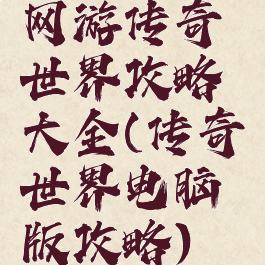 网游传奇
世界攻略
大全(传奇
世界电脑
版攻略)